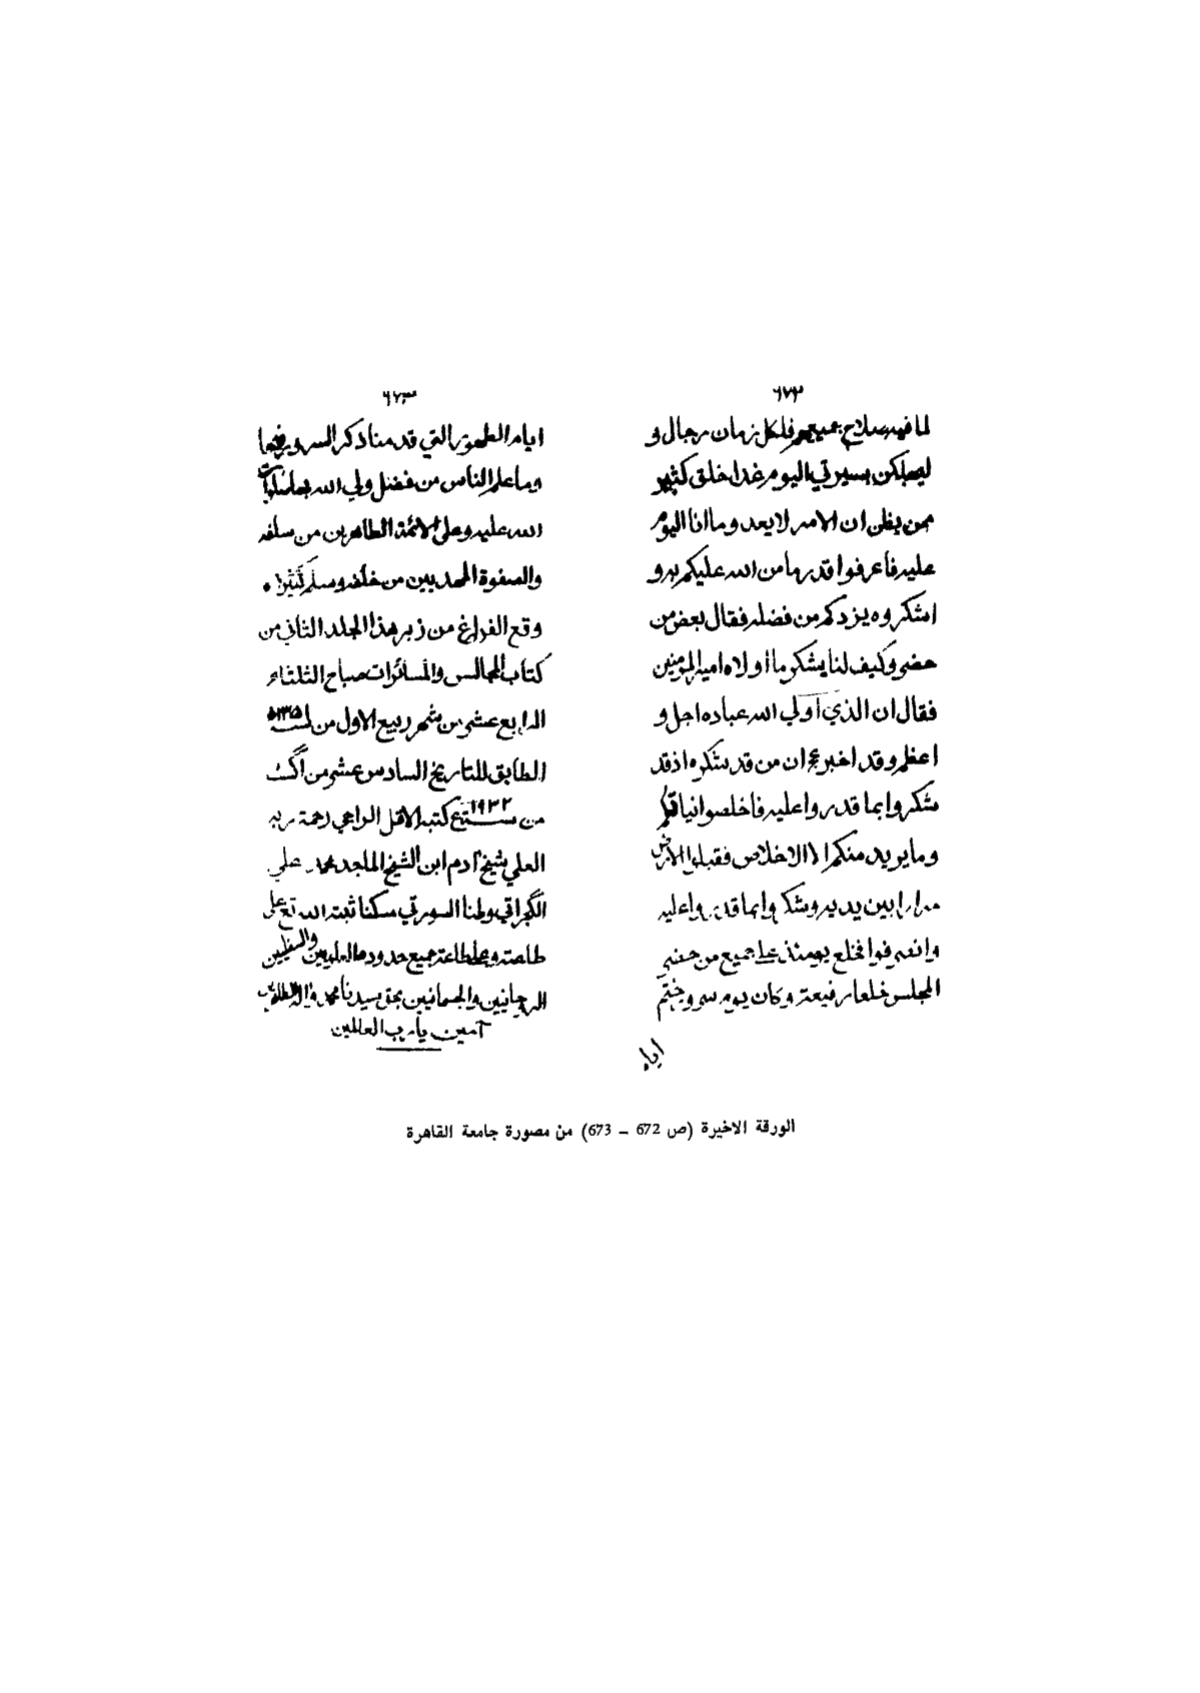 ٦٧٢
لما فيه صلاح جميعهم فلكل زمان رجال و
ليهلكن بسيرتي اليوم غدا خلق كثير
ممن يظن ان الامر لا يعد وما انا اليوم
عليه فاعرفوا قدر ما من الله عليكم به و
اشكروه يزدكم من فضله فقال بعض من
حضر وكيف لنا بشكر ما اولاه امير المومنين
فقال ان الذي اولي الله عباده اجل و
اعظم وقد اخبر عج ان من قد شكره اذ قد
شكروا بما قدروا عليه فاخلصوا نياتكم
وما يريد منكم الا الاخلاص فقبلوا الارض
مرارا بين يديه وشكروا بما قدروا عليه
وانصرفوا فخلع يومئذ على جميع من حضر
المجلس خلعا رفيعة وكان يوم سرور ختم
ايام
٦٧٣
ايام الطهور التي قدمنا ذكر السرور فيها
وما علم الناس من فضل ولي الله بها صلوات
الله عليه وعلى الائمة الطاهرين من سلفه
والصفوة المهديين من خلفه وسلم كثيرا.
وقع الفراغ من زبر هذا المجلد الثاني من
كتاب المجالس والمسائرات صباح الثلثاء
الرابع عشر من شهر ربيع الاول من سنة ١٣٥١ه
الطابق للتاريخ السادس عشر من اگست
من سنة ١٩٣٢ع كتبه الاقل الراجي رحمة ربه
العلي شيخ آدم ابن الشيخ الماجد محمد علي
الگجراتي وطنا السورتي سكنا ثبته الله تع على
طاعته وعلى طاعة جميع حدوده العلويين والسفليين
الروحانيين والجسمانيين بحق سيدنا محمد واله الطاهرين
آمين يا رب العالمين
الورقة الاخيرة (ص 672 – 673) من مصورة جامعة القاهرة